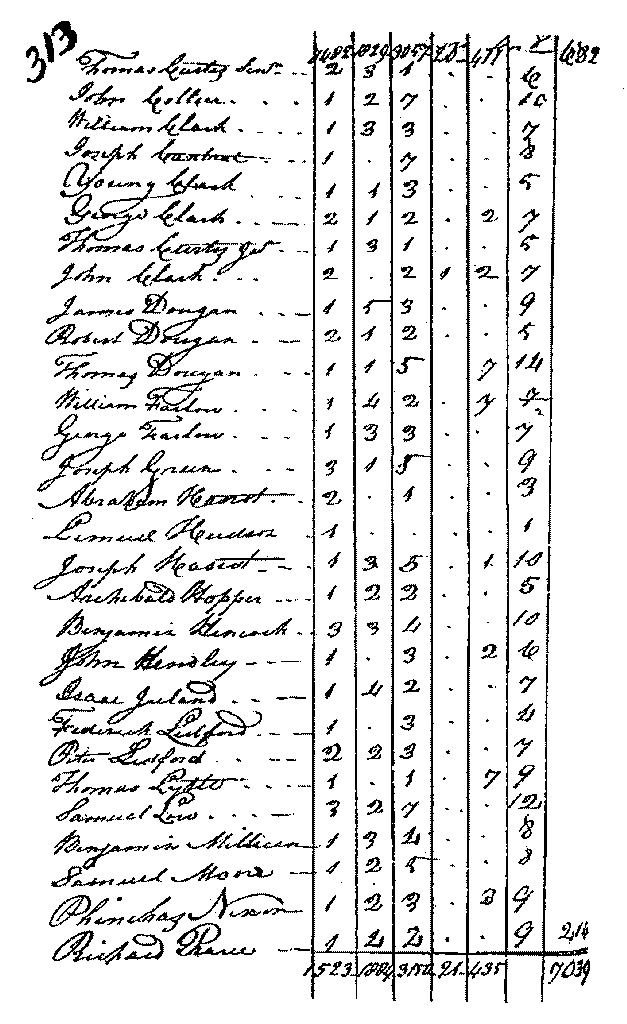 313
1482 1829 3057 20 475 6882
Thomas Curtis Senr 2 3 1 . . 6
John Collier . . . 1 2 7 . . 10
William Clark . . . 1 3 3 . . 7
Joseph 1 . 7 . . 8
Young Clark 1 1 3 . . 5
George Clark . . 2 1 2 . 2 7
Thomas Curtis Jr 1 3 1 . . 5
John Clark . . 2 . 2 1 2 7
James Dougan . . . 1 5 3 . . 9
Robert Dougan . . 2 1 2 . . 5
Thomas Dougan . . . 1 1 5 . 7 14
William Farlow . . . 1 4 2 . 7
George Farlow . . . 1 3 3 . . 7
Joseph Green . . . 3 1 5 . . 9
Abraham . . 2 . 1 . . 3
Lemuel Hudson 1 . . . . 1
Joseph 1 3 5 . 1 10
Archibald Hopper . . . 1 2 2 . . 5
Benjamin Hancock . . 3 3 4 . . 10
John Hendley . . . 1 . 3 . 2 6
Isaac . . . 1 4 2 . . 7
Frederick Ledford . . 1 . 3 . . 4
Peter Ledford . . . 2 2 3 . . 7
Thomas Lytle . . 1 . 1 . 7 9
Samuel Low . . . 3 2 7 . . 12
Benjamin Millican 1 3 4 . . 8
Samuel Moore . . 1 2 5 . . 8
Phinehas Nixon 1 2 3 . 3 9
Richard 1 4 4 . . 9 214
1523 1884 3150 21 435 7039